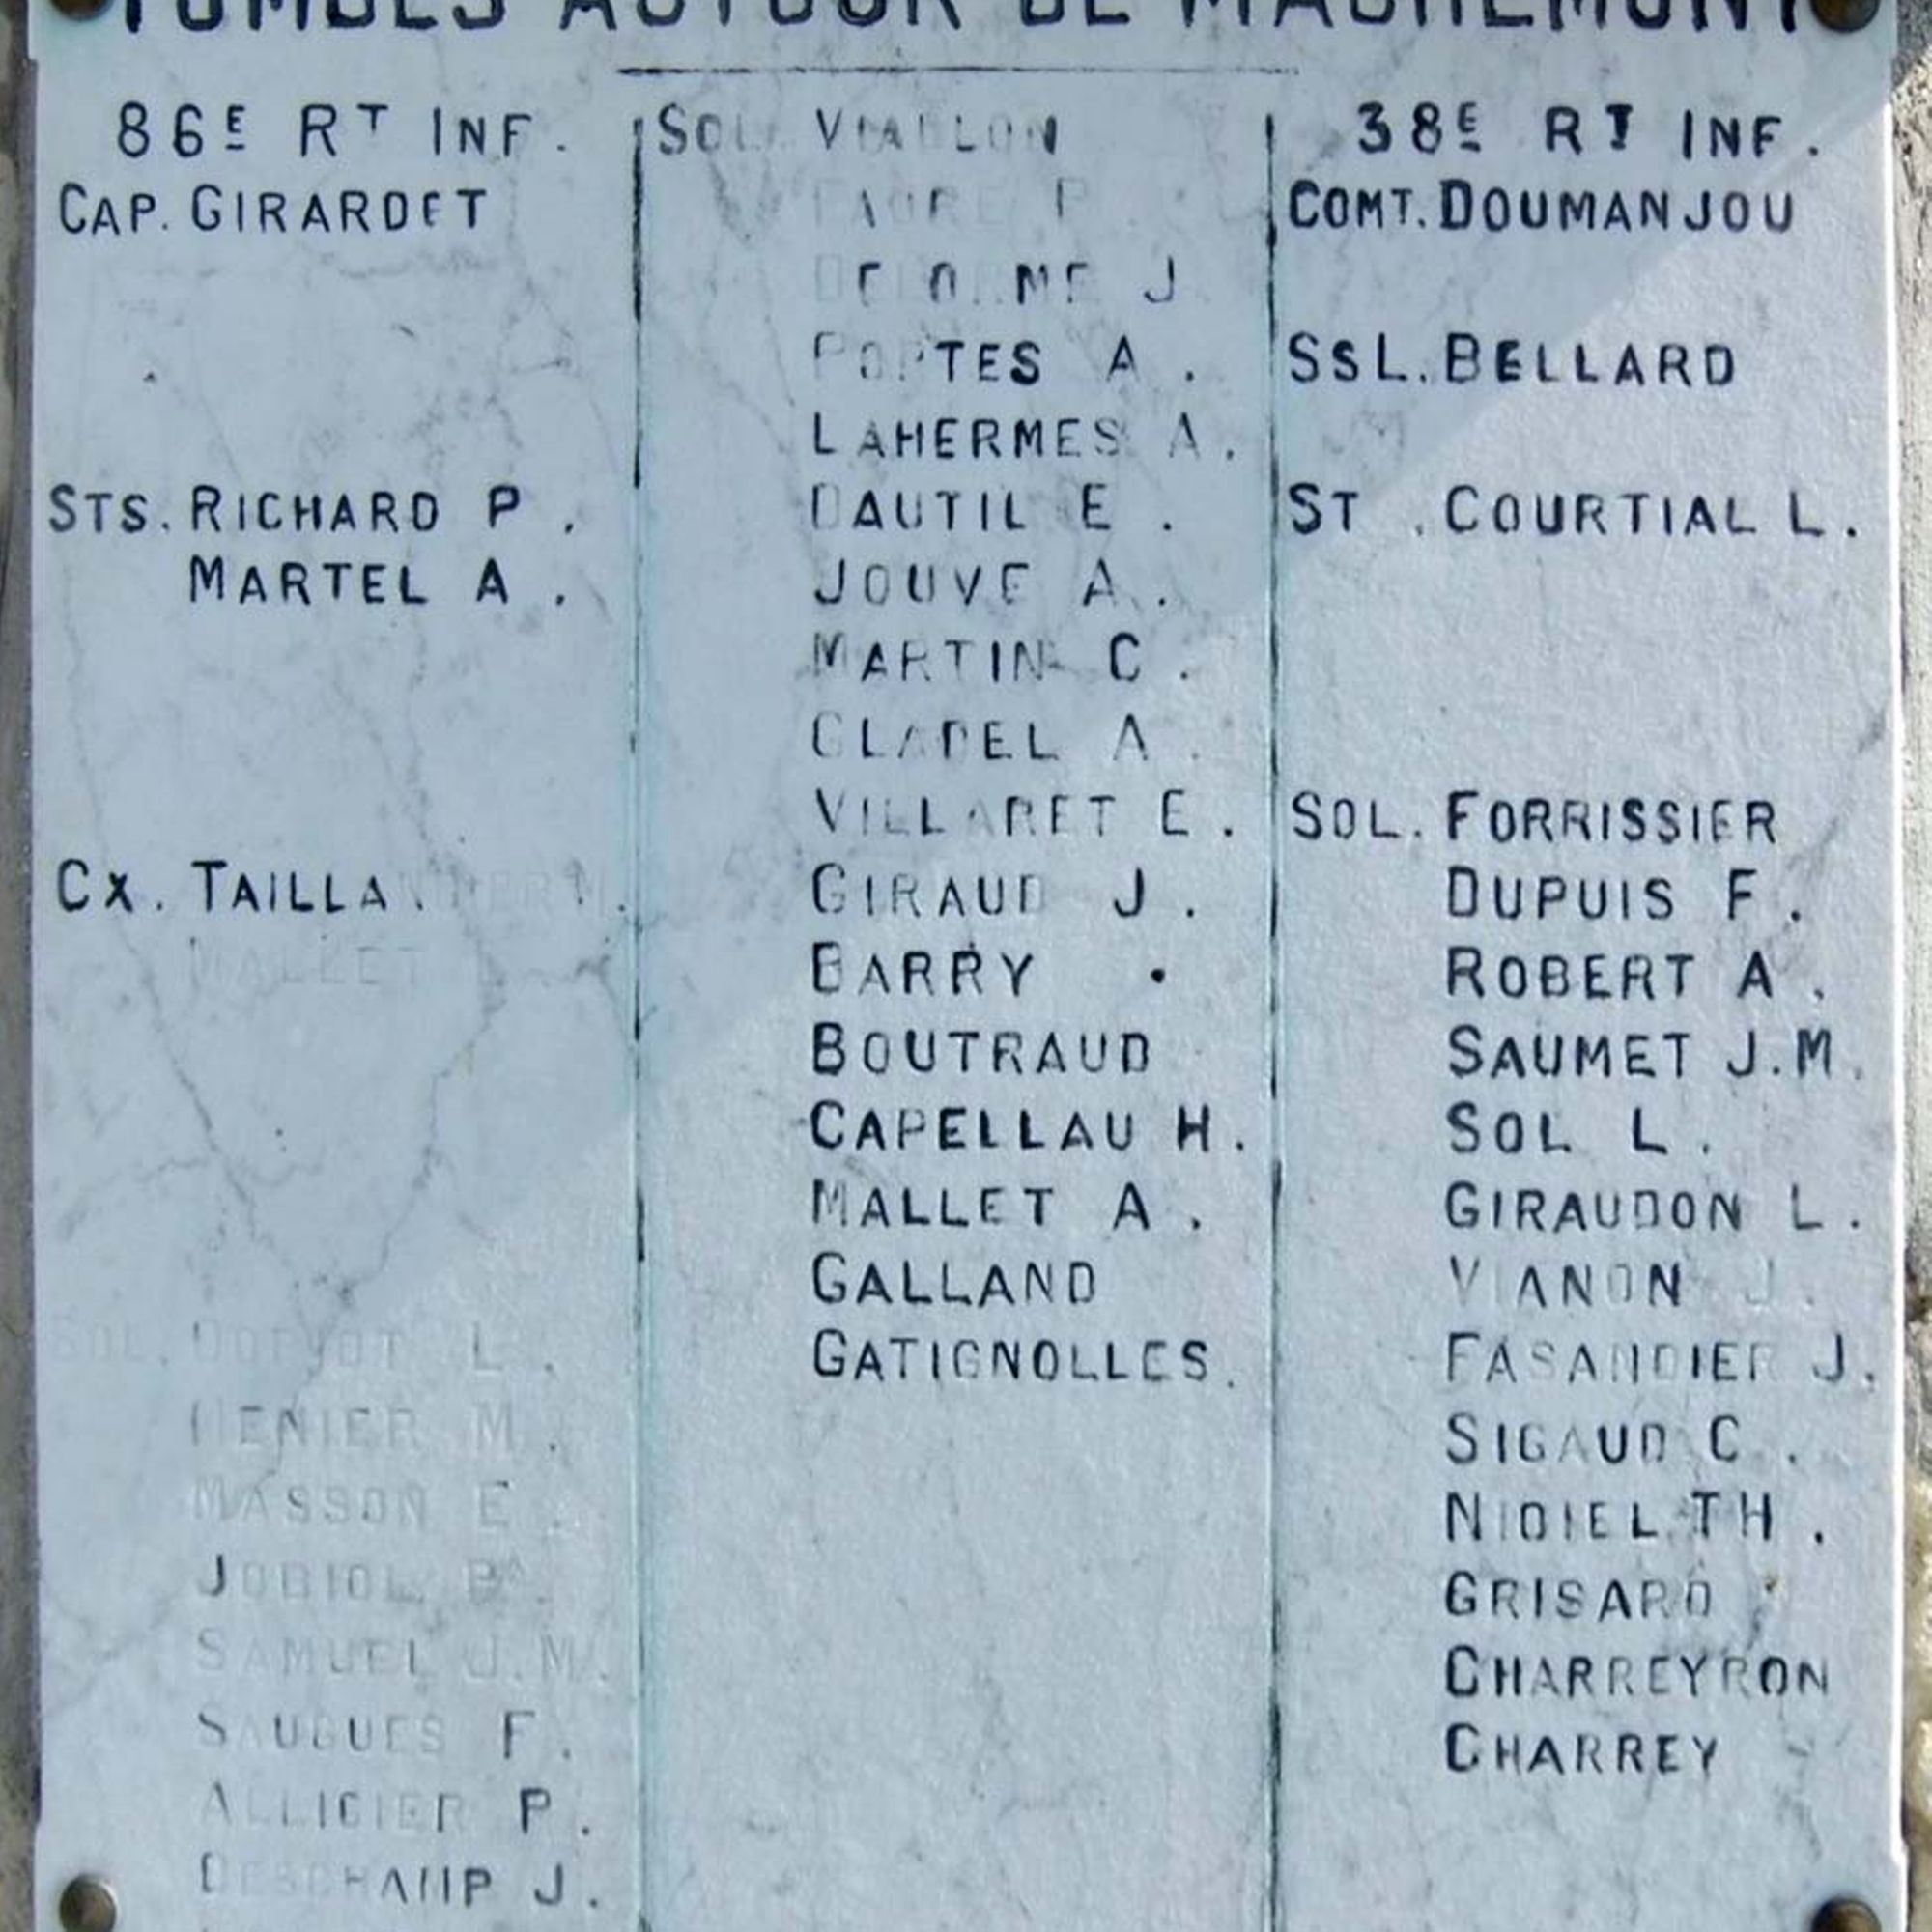 TOMBES AUTOUR DE MACHEMONT
86E RT INF.
CAP. GIRARDET
STS. RICHARD P.
MARTEL A.
CX. TAILLANDIER M.
MALLET
SOL. L.
MASSON E.
JOBIOL
SAMUEL J.M.
SAUGUES F.
ALLIGIER P.
DESCHAMP J.
SOL. VIALLON
FAURE P.
DELORME J
PORTES A.
LAHERMES A.
DAUTIL E.
JOUVE A.
MARTIN C.
CLADEL A.
VILLARET E.
GIRAUD J.
BARRY .
BOUTRAUD
CAPELLAU H.
MALLET A.
GALLAND
GATIGNOLLES.
38E RT INF.
COMT. DOUMANJOU
SSL. BELLARD
ST. COURTIAL L.
SOL. FORRISSIER
DUPUIS F.
ROBERT A.
SAUMET J.M.
SOL L.
GIRAUDON L.
VIANON J.
FASANDIER J.
SIGAUD C.
NIDIEL TH.
GRISARD
CHARREYRON
CHARREY